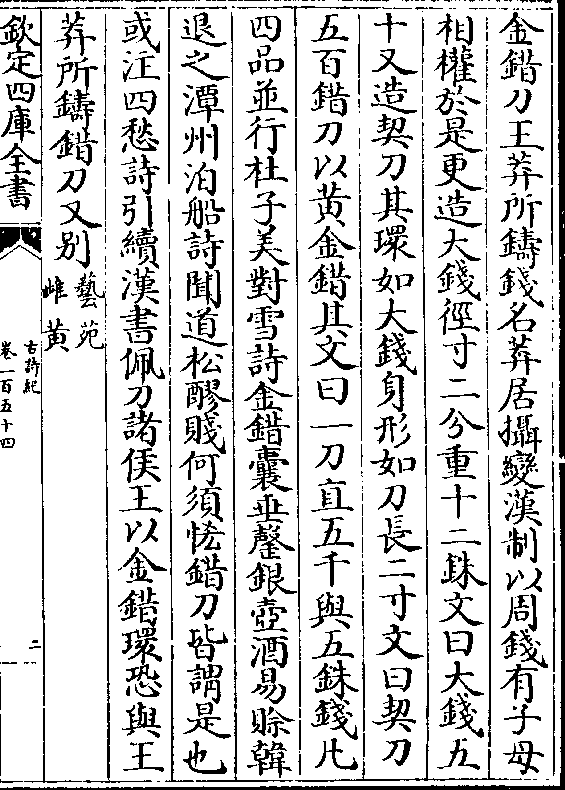 金錯刀王莽所鑄錢名莽居攝變漢制以周錢有子母
相權於是更造大錢徑寸二分重十二銖文曰大錢五
十又造契刀其環如大錢身形如刀長二寸文曰契刀
五百錯刀以黄金錯其文曰一刀直五千與五銖錢凡
四品並行杜子美對雪詩金錯囊垂罄銀壺酒易賒韓
退之潭州泊船詩聞道松醪賤何須恡錯刀皆謂是也
或注四愁詩引續漢書佩刀諸侯王以金錯環恐與王
莽所鑄錯刀又别
藝苑
雌黄
欽定四庫全書
古詩紀
卷一百五十四
二